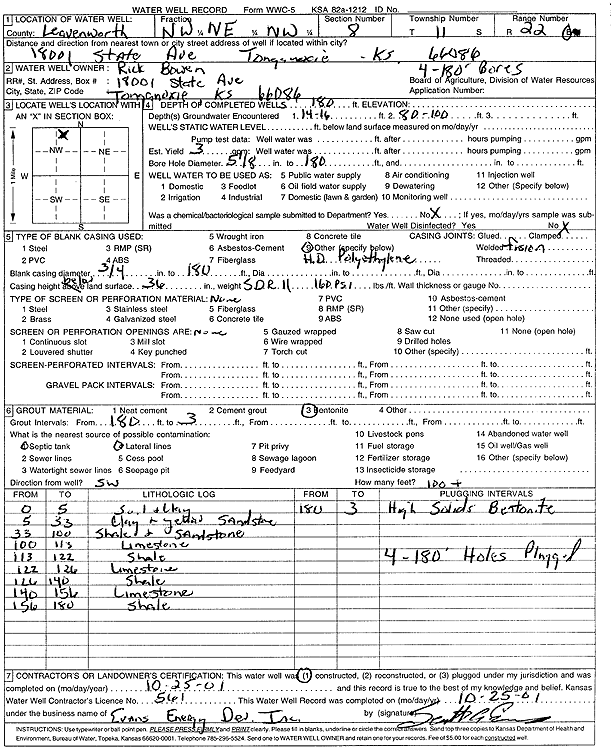 WATER WELL RECORD Form WWC-5 KSA 82a-1212 ID No.
1 LOCATION OF WATER WELL: Fraction Section Number Township Number Range Number
County: Leavenworth NW ¼ NE ¼ NW ¼ 8 T 11 S R 22 E
Distance and direction from nearest town or city street address of well if located within city?
18001 State Ave Tonganoxie - KS. 66086
2 WATER WELL OWNER: Rick Bowen 4-180' Bores
RR#, St. Address, Box # : 18001 State Ave Board of Agriculture, Division of Water Resources
City, State, ZIP Code : Tonganoxie KS 66086 Application Number:
3 LOCATE WELL'S LOCATION WITH AN "X" IN SECTION BOX:
N
X
NW NE
W E
SW SE
S
1 Mile
4 DEPTH OF COMPLETED WELL 180 ft. ELEVATION:
Depth(s) Groundwater Encountered 1. 14-16 ft. 2. 80-100 ft. 3. ft.
WELL'S STATIC WATER LEVEL ft. below land surface measured on mo/day/yr
Pump test data: Well water was ft. after hours pumping gpm
Est. Yield 3 gpm: Well water was ft. after hours pumping gpm
Bore Hole Diameter 5 1/8 in. to 180 ft., and in. to ft.
WELL WATER TO BE USED AS: 5 Public water supply 8 Air conditioning 11 Injection well
1 Domestic 3 Feedlot 6 Oil field water supply 9 Dewatering 12 Other (Specify below)
2 Irrigation 4 Industrial 7 Domestic (lawn & garden) 10 Monitoring well
Was a chemical/bacteriological sample submitted to Department? Yes No X ; If yes, mo/day/yrs sample was submitted Water Well Disinfected? Yes No X
5 TYPE OF BLANK CASING USED: 5 Wrought iron 8 Concrete tile CASING JOINTS: Glued Clamped
1 Steel 3 RMP (SR) 6 Asbestos-Cement 9 Other (specify below) Welded fusion
2 PVC 4 ABS 7 Fiberglass H.D. Polyethylene Threaded
Blank casing diameter 3/4 in. to 180 ft., Dia in. to ft., Dia in. to ft.
Casing height above land surface below 36 in., weight S.D.R. 11 160 PSI lbs./ft. Wall thickness or gauge No.
TYPE OF SCREEN OR PERFORATION MATERIAL: None 7 PVC 10 Asbestos-cement
1 Steel 3 Stainless steel 5 Fiberglass 8 RMP (SR) 11 Other (specify)
2 Brass 4 Galvanized steel 6 Concrete tile 9 ABS 12 None used (open hole)
SCREEN OR PERFORATION OPENINGS ARE: None 5 Gauzed wrapped 8 Saw cut 11 None (open hole)
1 Continuous slot 3 Mill slot 6 Wire wrapped 9 Drilled holes
2 Louvered shutter 4 Key punched 7 Torch cut 10 Other (specify) ft.
SCREEN-PERFORATED INTERVALS: From ft. to ft., From ft. to ft.
From ft. to ft., From ft. to ft.
GRAVEL PACK INTERVALS: From ft. to ft., From ft. to ft.
From ft. to ft., From ft. to ft.
6 GROUT MATERIAL: 1 Neat cement 2 Cement grout 3 Bentonite 4 Other
Grout Intervals: From 180 ft. to 3 ft., From ft. to ft., From ft. to ft.
What is the nearest source of possible contamination: 10 Livestock pens 14 Abandoned water well
1 Septic tank 4 Lateral lines 7 Pit privy 11 Fuel storage 15 Oil well/Gas well
2 Sewer lines 5 Cess pool 8 Sewage lagoon 12 Fertilizer storage 16 Other (specify below)
3 Watertight sewer lines 6 Seepage pit 9 Feedyard 13 Insecticide storage
Direction from well? SW How many feet? 100 +
FROM TO LITHOLOGIC LOG FROM TO PLUGGING INTERVALS
0 5 Soil & Clay 180 3 High Solids Bentonite
5 33 Clay & yellow Sandstone
33 100 Shale & Sandstone
100 113 Limestone
113 122 Shale 4-180' Holes Plugged
122 126 Limestone
126 140 Shale
140 156 Limestone
156 180 Shale
7 CONTRACTOR'S OR LANDOWNER'S CERTIFICATION: This water well was (1) constructed, (2) reconstructed, or (3) plugged under my jurisdiction and was
completed on (mo/day/year) 10-25-01 and this record is true to the best of my knowledge and belief. Kansas
Water Well Contractor's Licence No. 561 This Water Well Record was completed on (mo/day/yr) 10-25-01
under the business name of Evans Energy Dev. Inc. by (signature)
INSTRUCTIONS: Use typewriter or ball point pen. PLEASE PRESS FIRMLY and PRINT clearly. Please fill in blanks, underline or circle the correct answers. Send top three copies to Kansas Department of Health and
Environment, Bureau of Water, Topeka, Kansas 66620-0001. Telephone 785-296-5524. Send one to WATER WELL OWNER and retain one for your records. Fee of $5.00 for each constructed well.